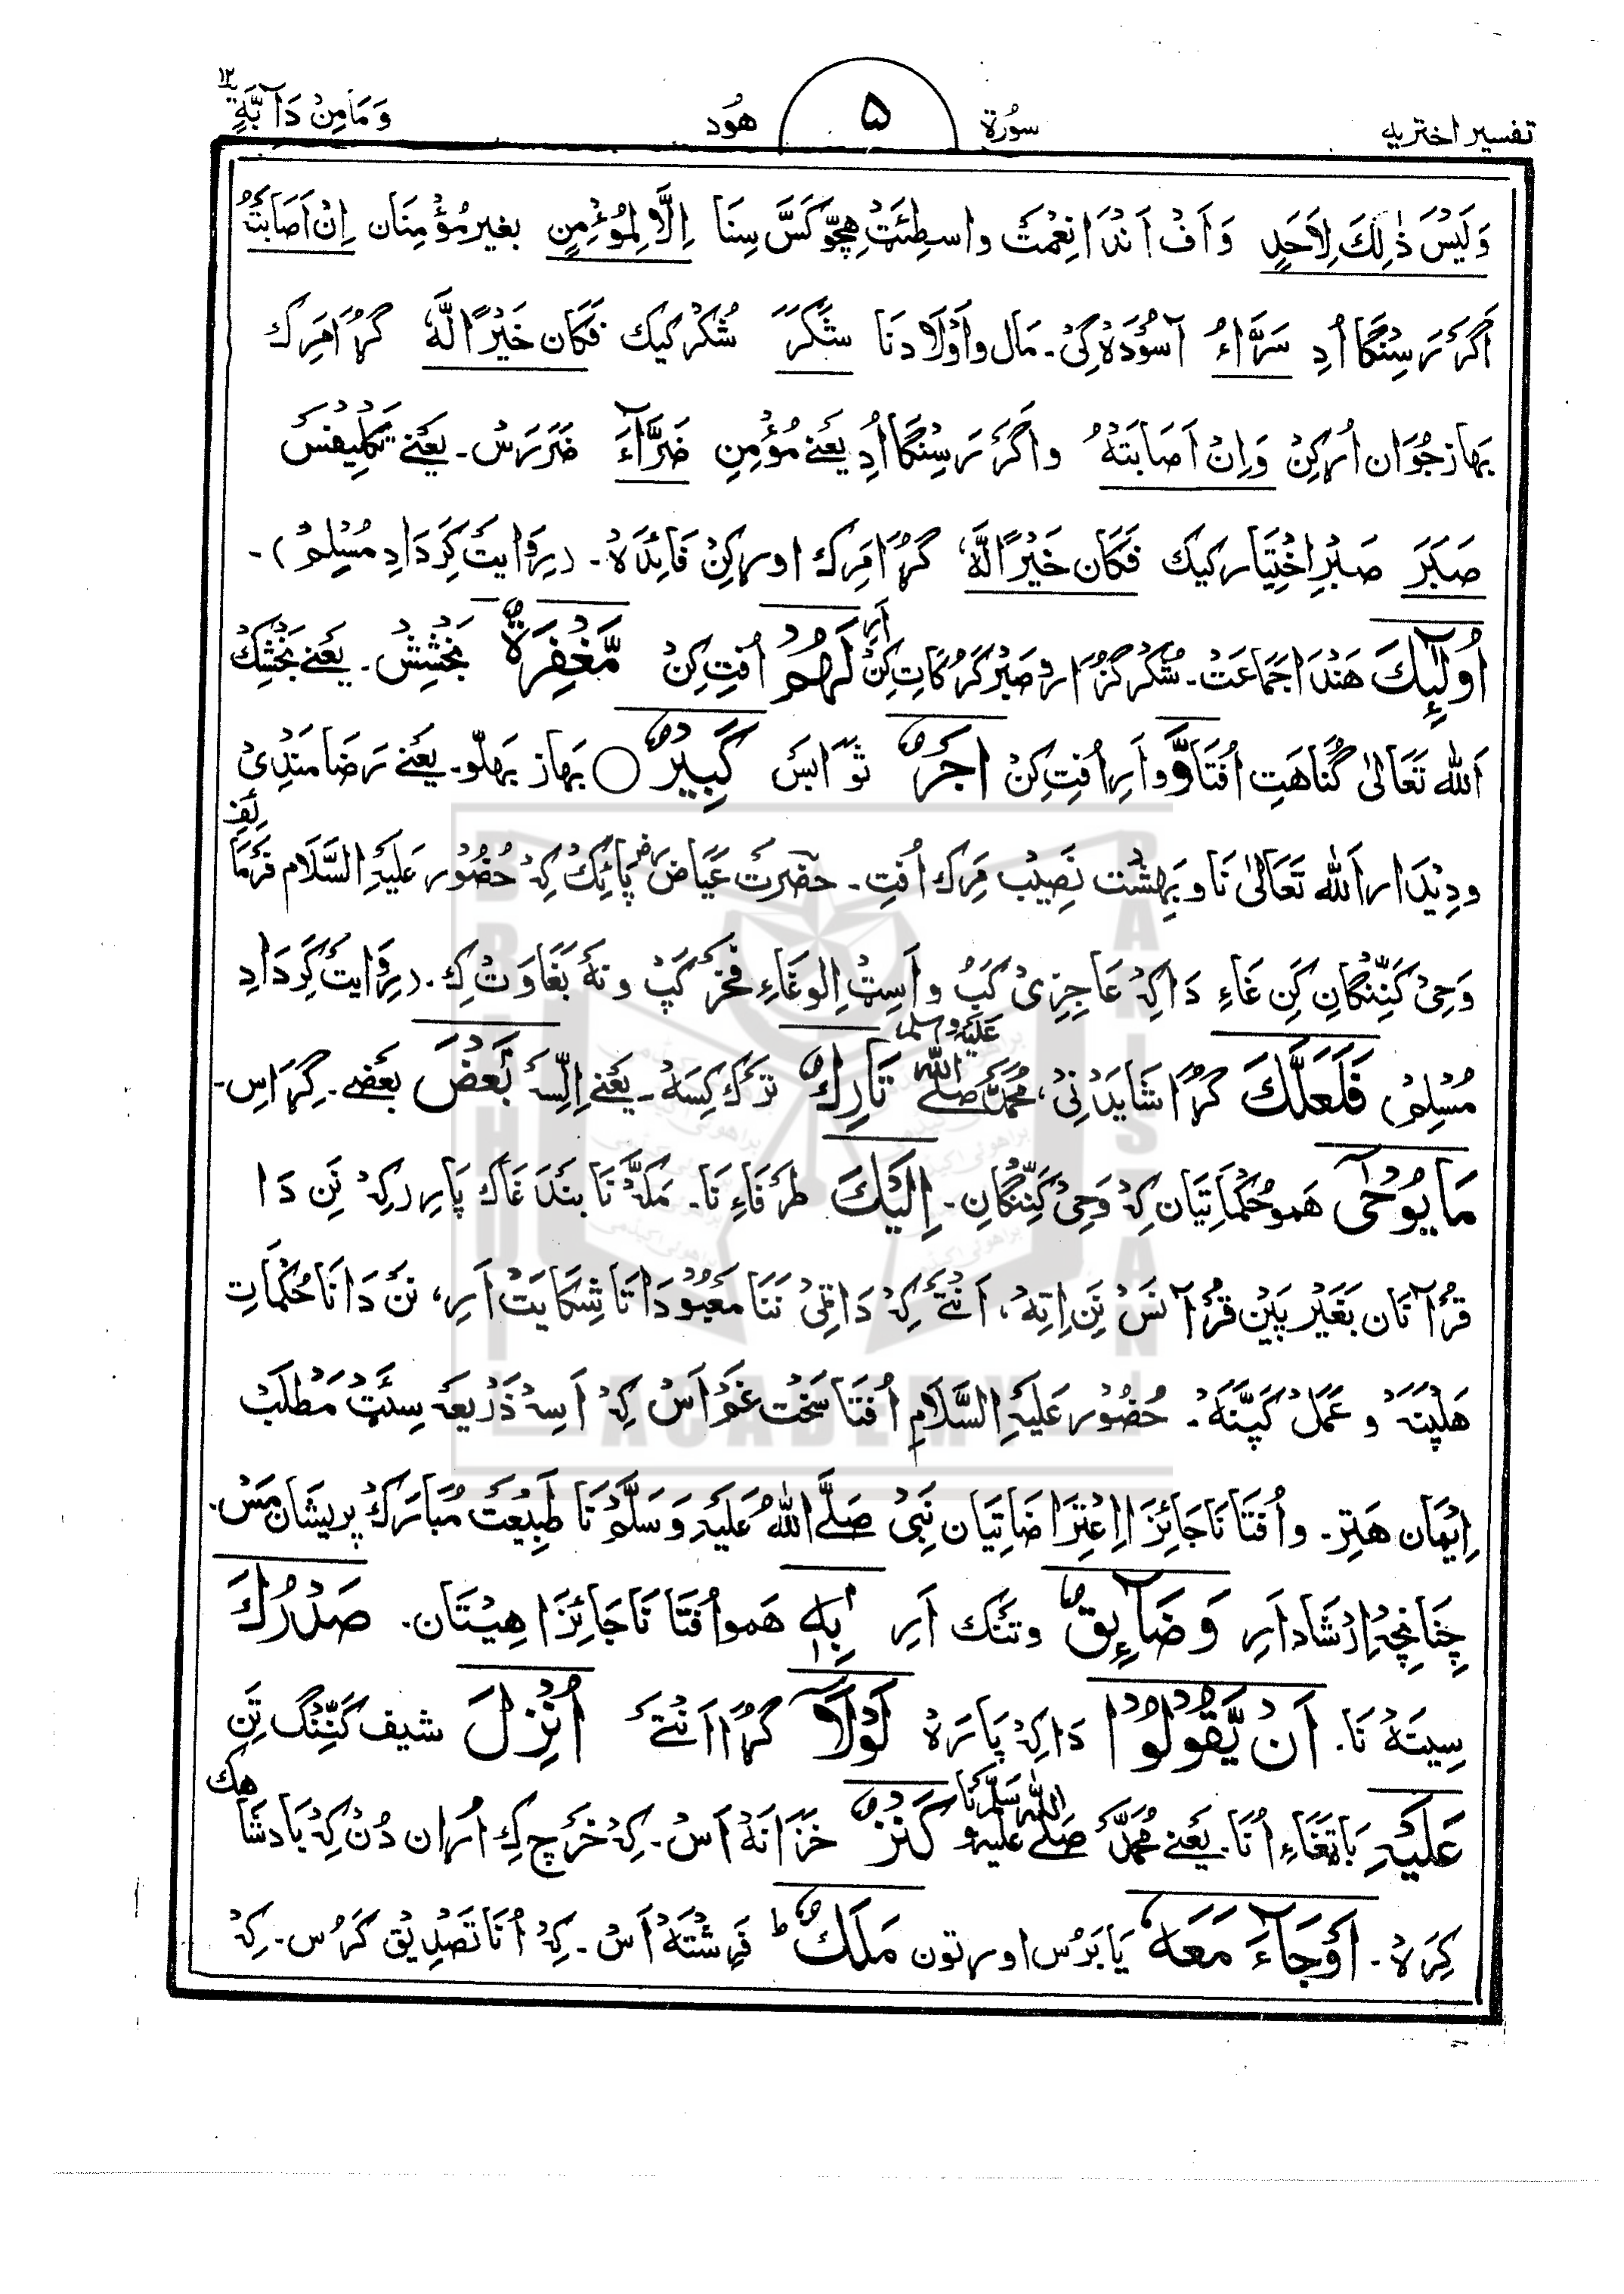 تفسیر اختریہ سُورۃ ۵ ھُود وَمَا مِنْ دَآبَّۃٍ ۱۲
وَلَیْسَ ذٰلِکَ لِاَحَدٍ وَ اَفْ اَنْدَا نِعْمَتْ واسطِئَتْ ھِچّو کَسَّ سِنَا اِلَّا لِمُؤْمِنٍ بغیر مُؤمِنَان اِنْ اَصَابَتْہُ
اَگَر رَسِنگا اُدِ سَرَّاءُ آسُوْدَہْ گِیْ۔ مَال و اَوْلَاد نَا شَکَرَ شُکْر کیک فَکَان خَیْرًا لَّہٗ گُڑَا مَرِک
بَھاز جُوَان اُرکِنْ وَ اِنْ اَصَابَتْہُ و اَگَر رَسِنگا اُدِ یَعْنے مُؤْمِنِ ضَرَّآءَ ضَرَرَس۔ یَعْنے تَکْلِیْفَسْ
صَبَرَ صَبْر اِخْتِیَار کیک فَکَان خَیْرًا لَّہٗ گُڑَا مَرِک اورکِنْ فَائِدَہْ۔ (رِوَایتْ کَرِ دَادِ مُسْلِمْ)۔
اُولٰٓئِکَ ھَنْدَا جَمَاعَتْ۔ شُکْر گُزَار و صَبْر کَرُکَاتِ کِنْ اَرِ لَھُمْ اُفتِ کِنْ مَّغْفِرَۃٌ بَخْشِشْ۔ یَعْنے بَخْشِکْ
اَللہ تَعَالیٰ گُنَاھَتِ اُفْتَا وَّ و اَرِ اُفتِ کِنْ اَجْرٌ ثَوَابَسْ کَبِیْرٌ ○ بَھاز بَھلّو۔ یَعْنے رَضَا مَنْدِیْ
و دِیْدَار اَللہ تَعَالیٰ نَا و بَہِشْت نَصِیْب مَرِک اُفتِ۔ حضرت عَیَاضؓ پَائِکْ کِہْ حُضُوْر عَلَیْہِ السَّلَام فَرْمَا
وَحِیْ کَنِنّگانِ کَنِ غَاءِ دَاکِہْ عَاجِزِیْ کَبُ و اَسِٹْ اِلوغَاءِ فَخْر کَپ و نَہْ بَغَاوَتْ کِ۔ (رِوَایتْ کَرِ دَادِ
مُسْلِمْ) فَلَعَلَّکَ گُڑَا شَایَد نِیْ، مُحَمَّدْ صلے اللہ علیہ وسلم تَارِکٌ تَرْک کِسَہْ۔ یَعْنے اِلِّسَہْ بَعْضَ بَعْضے۔ گِڑَاس۔
مَا یُوْحٰیٓ ھَمو حُکْمَاتِیَان کِہْ وَحِیْ کَنِنّگانِ۔ اِلَیْکَ طَرْفَاءِ نَا۔ مَکّہ نَا بَنْدَ غَاک پَارِر کِہْ نَنِ دَا
قُرْآنَان بَغَیْر پِیْن قُرْآنَسْ نَنِ اِتِہْ، اَنْتَئے کِہْ دَاٹِیْ نَنَا مَعْبُوْدَاتَا شِکَایَتْ اَرِ، نَن دَانَا حُکْمَاتِ
ھَلْپَنَہْ و عَمَلْ کَپَّنَہْ۔ حُضُوْر عَلَیْہِ السَّلَام اُفْتَا سَخْت غَمْ اَسْ کِہْ اَسِہْ ذَرِیْعَہ سِئَتْ مَطْلَب
اِیْمَان ھَتِر۔ و اُفْتَا نَاجَائِزَا اِعْتِرَاضَاتِیَان نَبِیْ صَلَّے اللہُ عَلَیْہِ وَسَلَّمْ نَا طَبِیْعَت مُبَارَکْ پَرِیْشَان مَسْ۔
چُنَانِچِہْ اِرْشَاد اَرِ وَضَآئِقٌۢ و تَنْک اَرِ بِہٖ ھَمو اُفْتَا نَاجَائِزَا ھِیْتَان۔ صَدْرُکَ
سِیْنَہْ نَا۔ اَنْ یَّقُوْلُوْا دَاکِہْ پَارَہْ لَوْلَآ گُڑَا اَنْتَئے اُنْزِلَ شیف کَنِنّگ تَنِ
عَلَیْہِ بَاتَغَاءِ اُنَا۔ یَعْنے مُحَمَّدْ صَلے اللہ علیہ وسلم نَا کَنْزٌ خَزَانَہْ اَسْ۔ کِہْ خَرْچ کِ اُڑان دُنْ کِہْ بَادشَاھک
کِرَہْ۔ اَوْ جَآءَ مَعَہٗ یَا بَرُس اورتون مَلَکٌ ؕ فَرِشْتَہْ اَسْ۔ کِہْ اُنَا تَصْدِیْق کَرُس۔ کِہْ
BRAHUI ACADEMY PAKISTAN